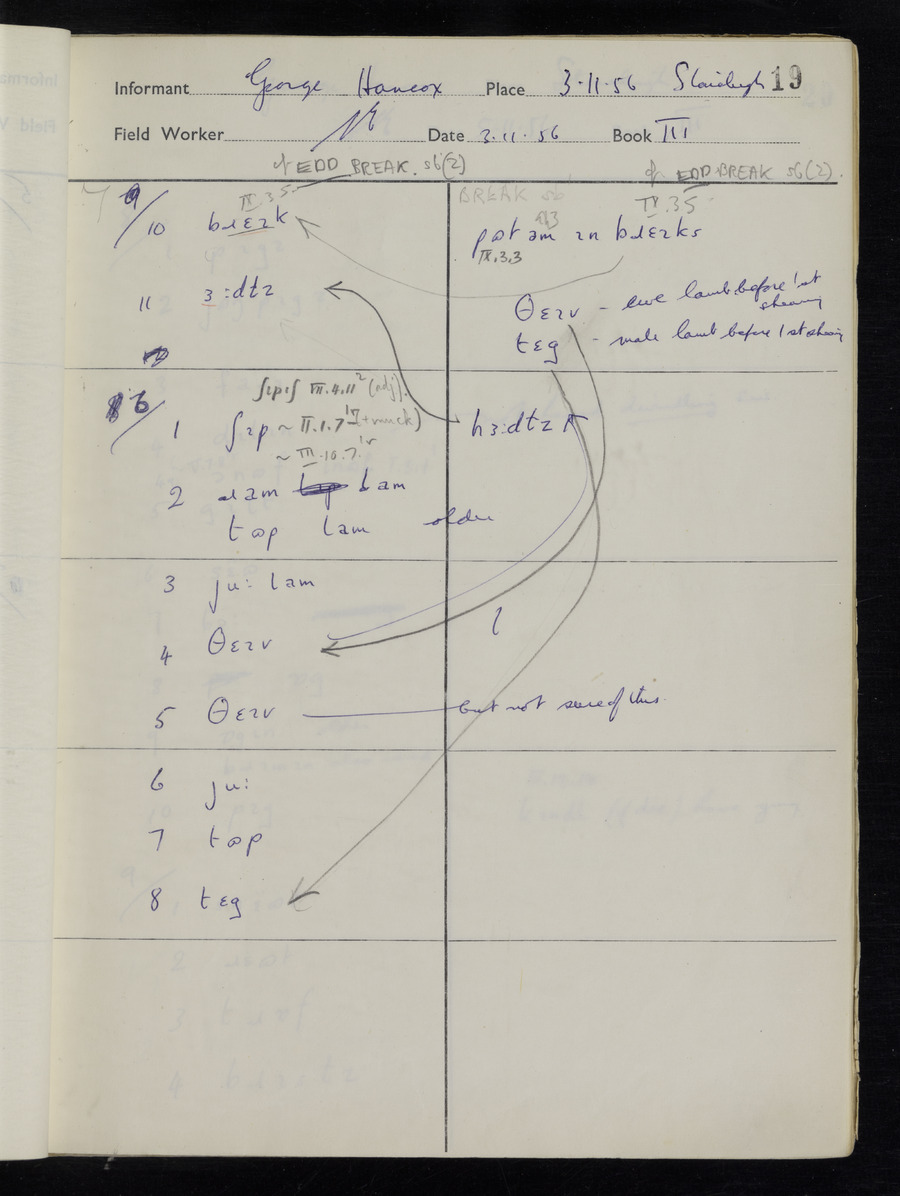 Informant George Hancox Place 3·11·56 Slawleigh 19
Field Worker Date 3·11·56 Book III
cf EDD BREAK. sb(2) cf EDD BREAK sb(2).
9/10 bɹɛɪk IX.3.5
BREAK sb
IV.3.5
pɒt əm ɪn bɹɛɪks
IX.3.3
11 ɜ:dtɪ
θɛɪv – ewe lamb before 1st shearing
tɛg – male lamb before 1st shearing
ʃɪpɪʃ VII.4.11² (adj).
6/1 ʃɪp ~ II.1.7 (+muck)
~ III.10.7
hɜ:dtɪ ↑
2 ɹam lam
tɒp lam older
3 ju: lam
4 θɛɪv
5 θɛɪv but not sure of this.
6 ju:
7 tɒp
8 tɛg